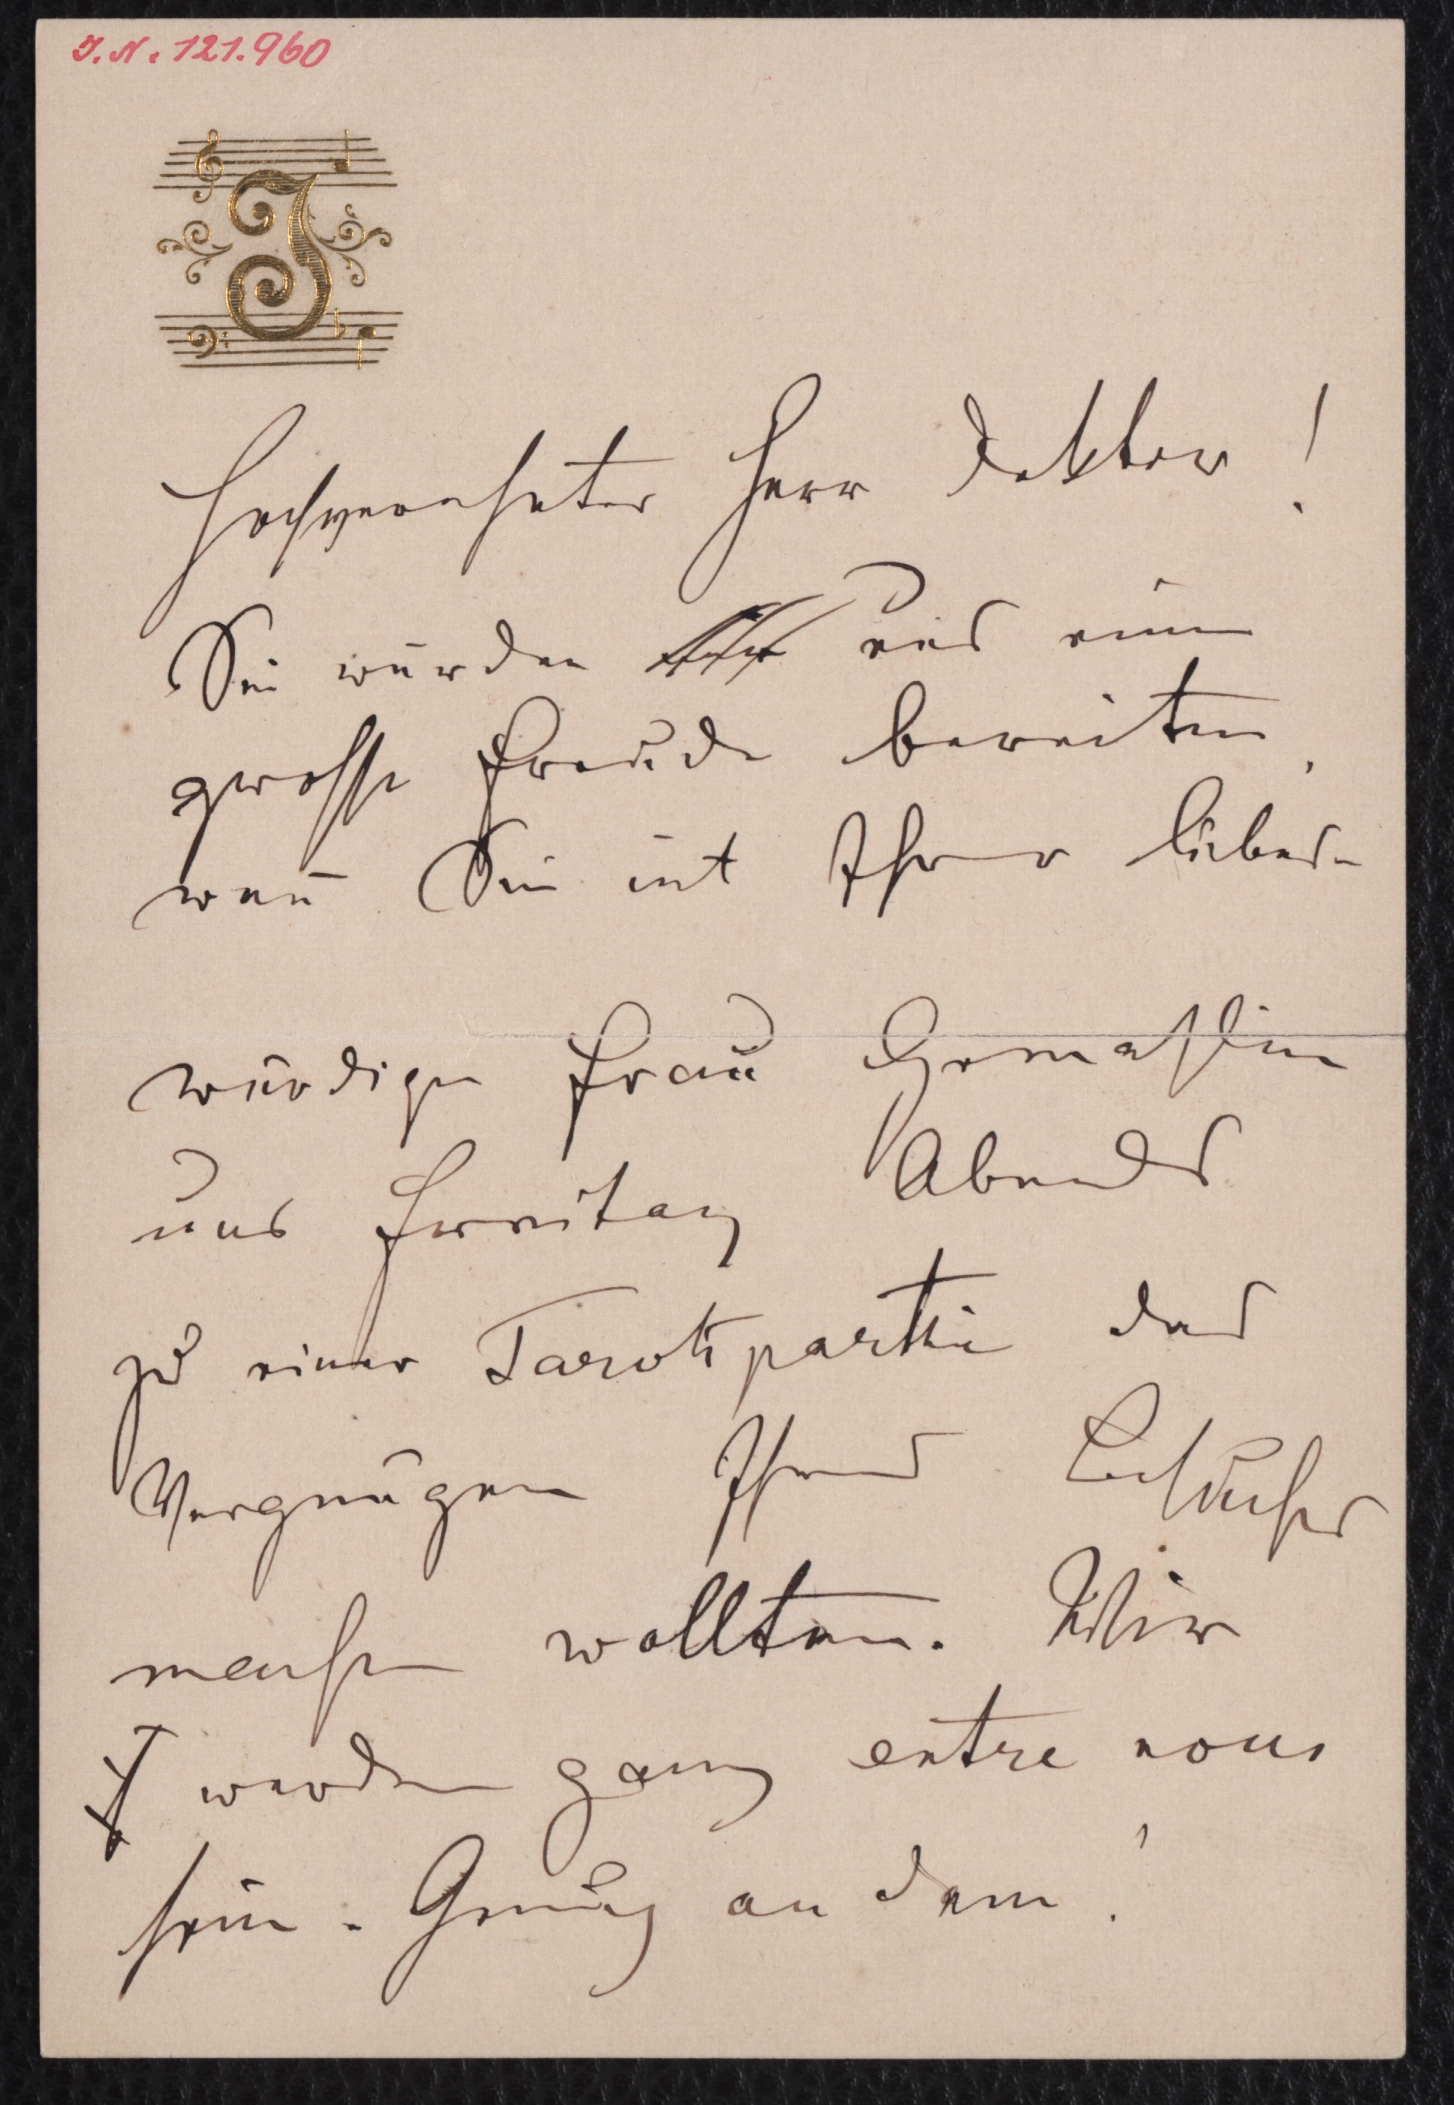 J. N. 121.960
J
Hochverehrter Herr Doktor!
Sie würden uns eine
grosse Freude bereiten,
wen̄ Sie mit Ihrer liebens-
würdigen Frau Gemahlin
uns Freitag Abends
zu einer Tarokpartie das
Vergnügen Ihres Besuches
machen wollten. Wir
werden ganz entre nous
sein. Genug an dem!